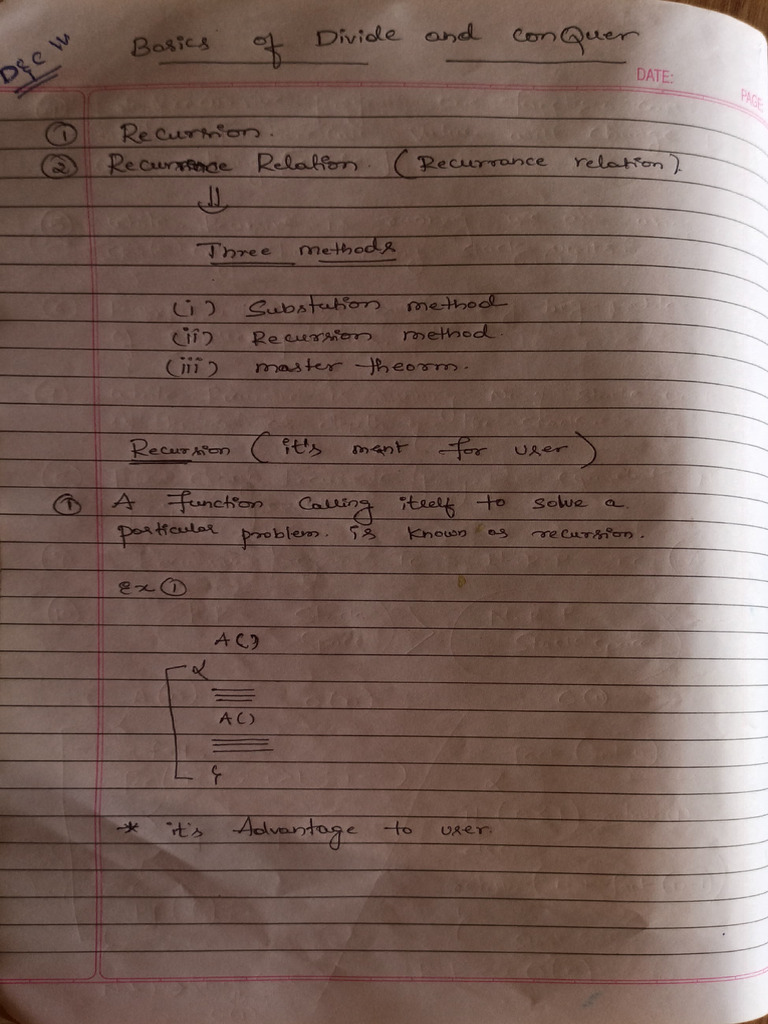 Basics of Divide and conQuer
D&C
DATE:
PAGE
① Recursion.
② Relation. (Recurrance relation).
⇓
Three methods
(i) Substution method
(ii) Recursion method.
(iii) master theorm.
Recursion (it's ment for user)
① A function calling itself to solve a
particular problem. is known as recursion.
Ex ①
A()
{
A()
}
* it's Advantage to user.